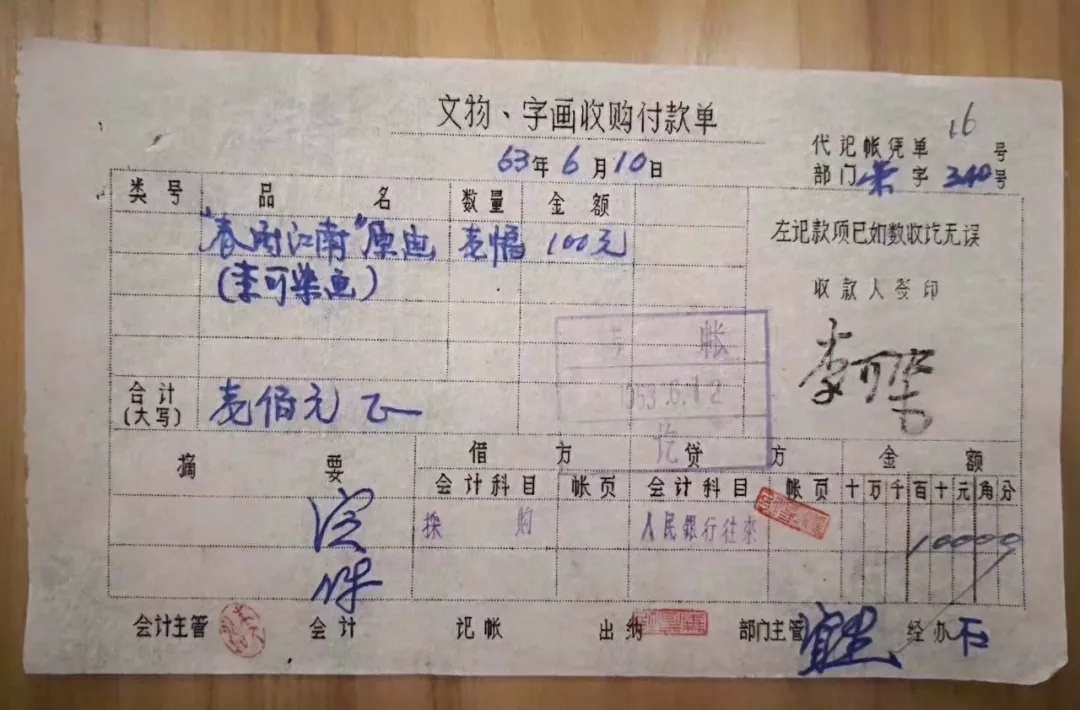 文物、字画收购付款单
16
63年6月10日
代记帐凭单 号
部门荣字340号
类号 品名 数量 金额
"春雨江南"原画 壹幅 100元
(李可染画)
左记款项已如数收讫无误
收款人签印
李可染
帐
1963.6.12
讫
合计(大写) 壹佰元正
摘要 借方 贷方 金额
会计科目 帐页 会计科目 帐页 十万千百十元角分
採购 人民银行往来 10000
会计主管 会计 记帐 出纳 部门主管 经办